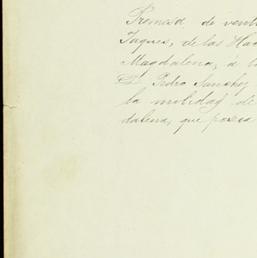 Promesa de vent
Jaques, de las Hac
Magdalena, a l
D. Pedro Sanchez
la mitidad de
dalena, que posea